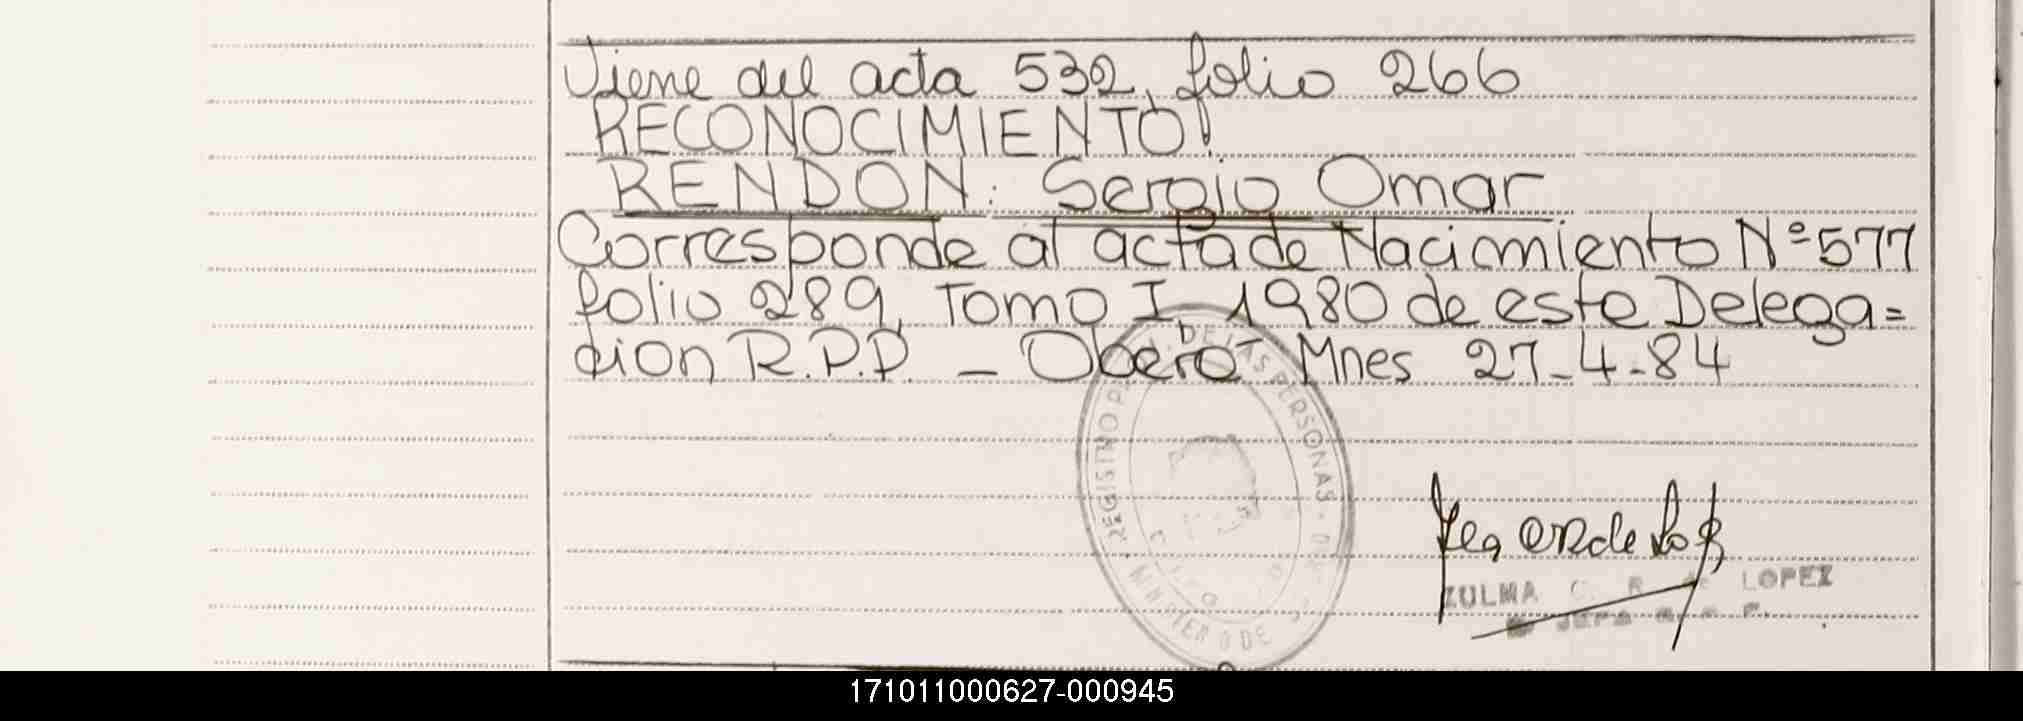 Viene del acta 532, folio 266
RECONOCIMIENTO!
RENDON: Sergio Omar
Corresponde al acta de Nacimiento Nº 577
folio 289, Tomo I, 1980 de este Delega=
cion R.P.P. - Oberá Mnes 27-4-84
DE LAS PERSONAS
ZULMA C. R. de LOPEZ
JEFA
171011000627-000945